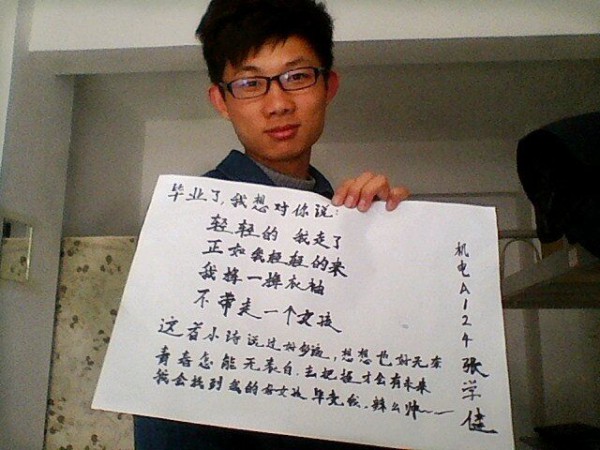 毕业了,我想对你说:
轻轻的 我走了
正如我轻轻的来
我挥一挥衣袖
不带走一个女孩
这首小诗说过好多遍,想想也好无奈
青春怎能无表白,去把握才会有未来
我会找到我的好女孩 毕竟我.辣么帅~~
机电A124 张学健